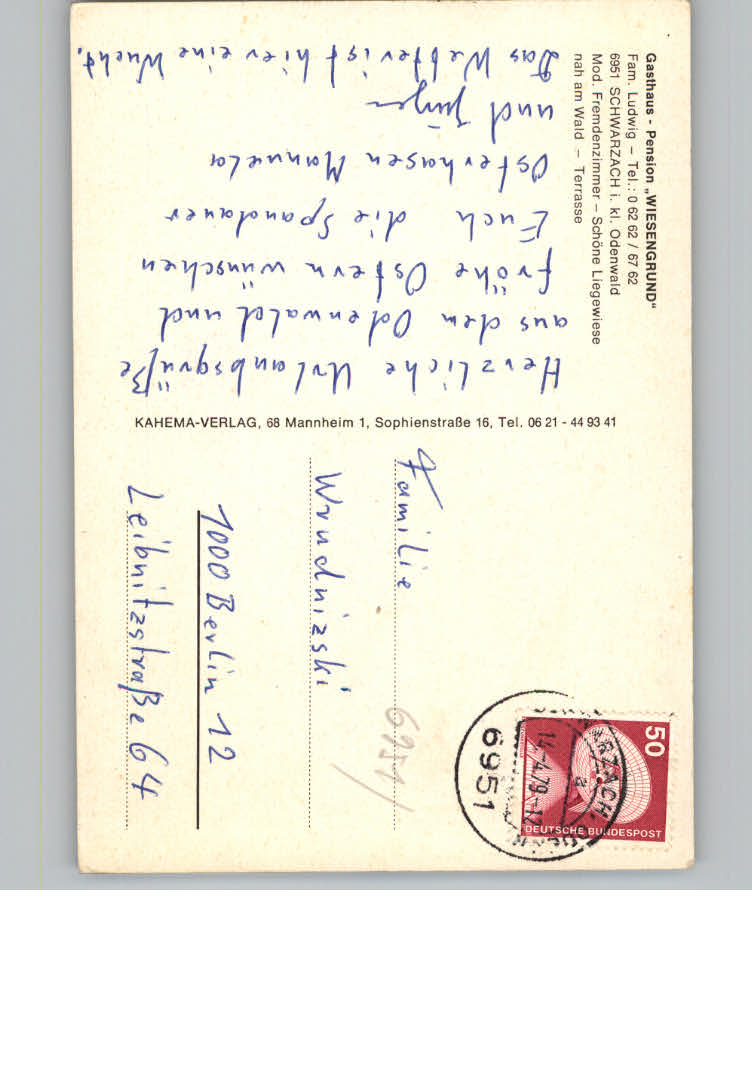 Gasthaus - Pension „WIESENGRUND"
Fam. Ludwig – Tel.: 0 62 62 / 67 62
6951 SCHWARZACH i. kl. Odenwald
Mod. Fremdenzimmer – Schöne Liegewiese
nah am Wald – Terrasse
Herzliche Urlaubsgrüße
aus dem Odenwald und
fröhe Ostern wünschen
Euch die Spandauer
Osterhasen Manuela
und Jürgen
Das Wetter ist hier eine Wucht.
KAHEMA-VERLAG, 68 Mannheim 1, Sophienstraße 16, Tel. 06 21 - 44 93 41
Familie
Wrudnizski
1000 Berlin 12
Leibnitzstraße 64
6951/
50
DEUTSCHE BUNDESPOST
6951
14.-4.79-12
a